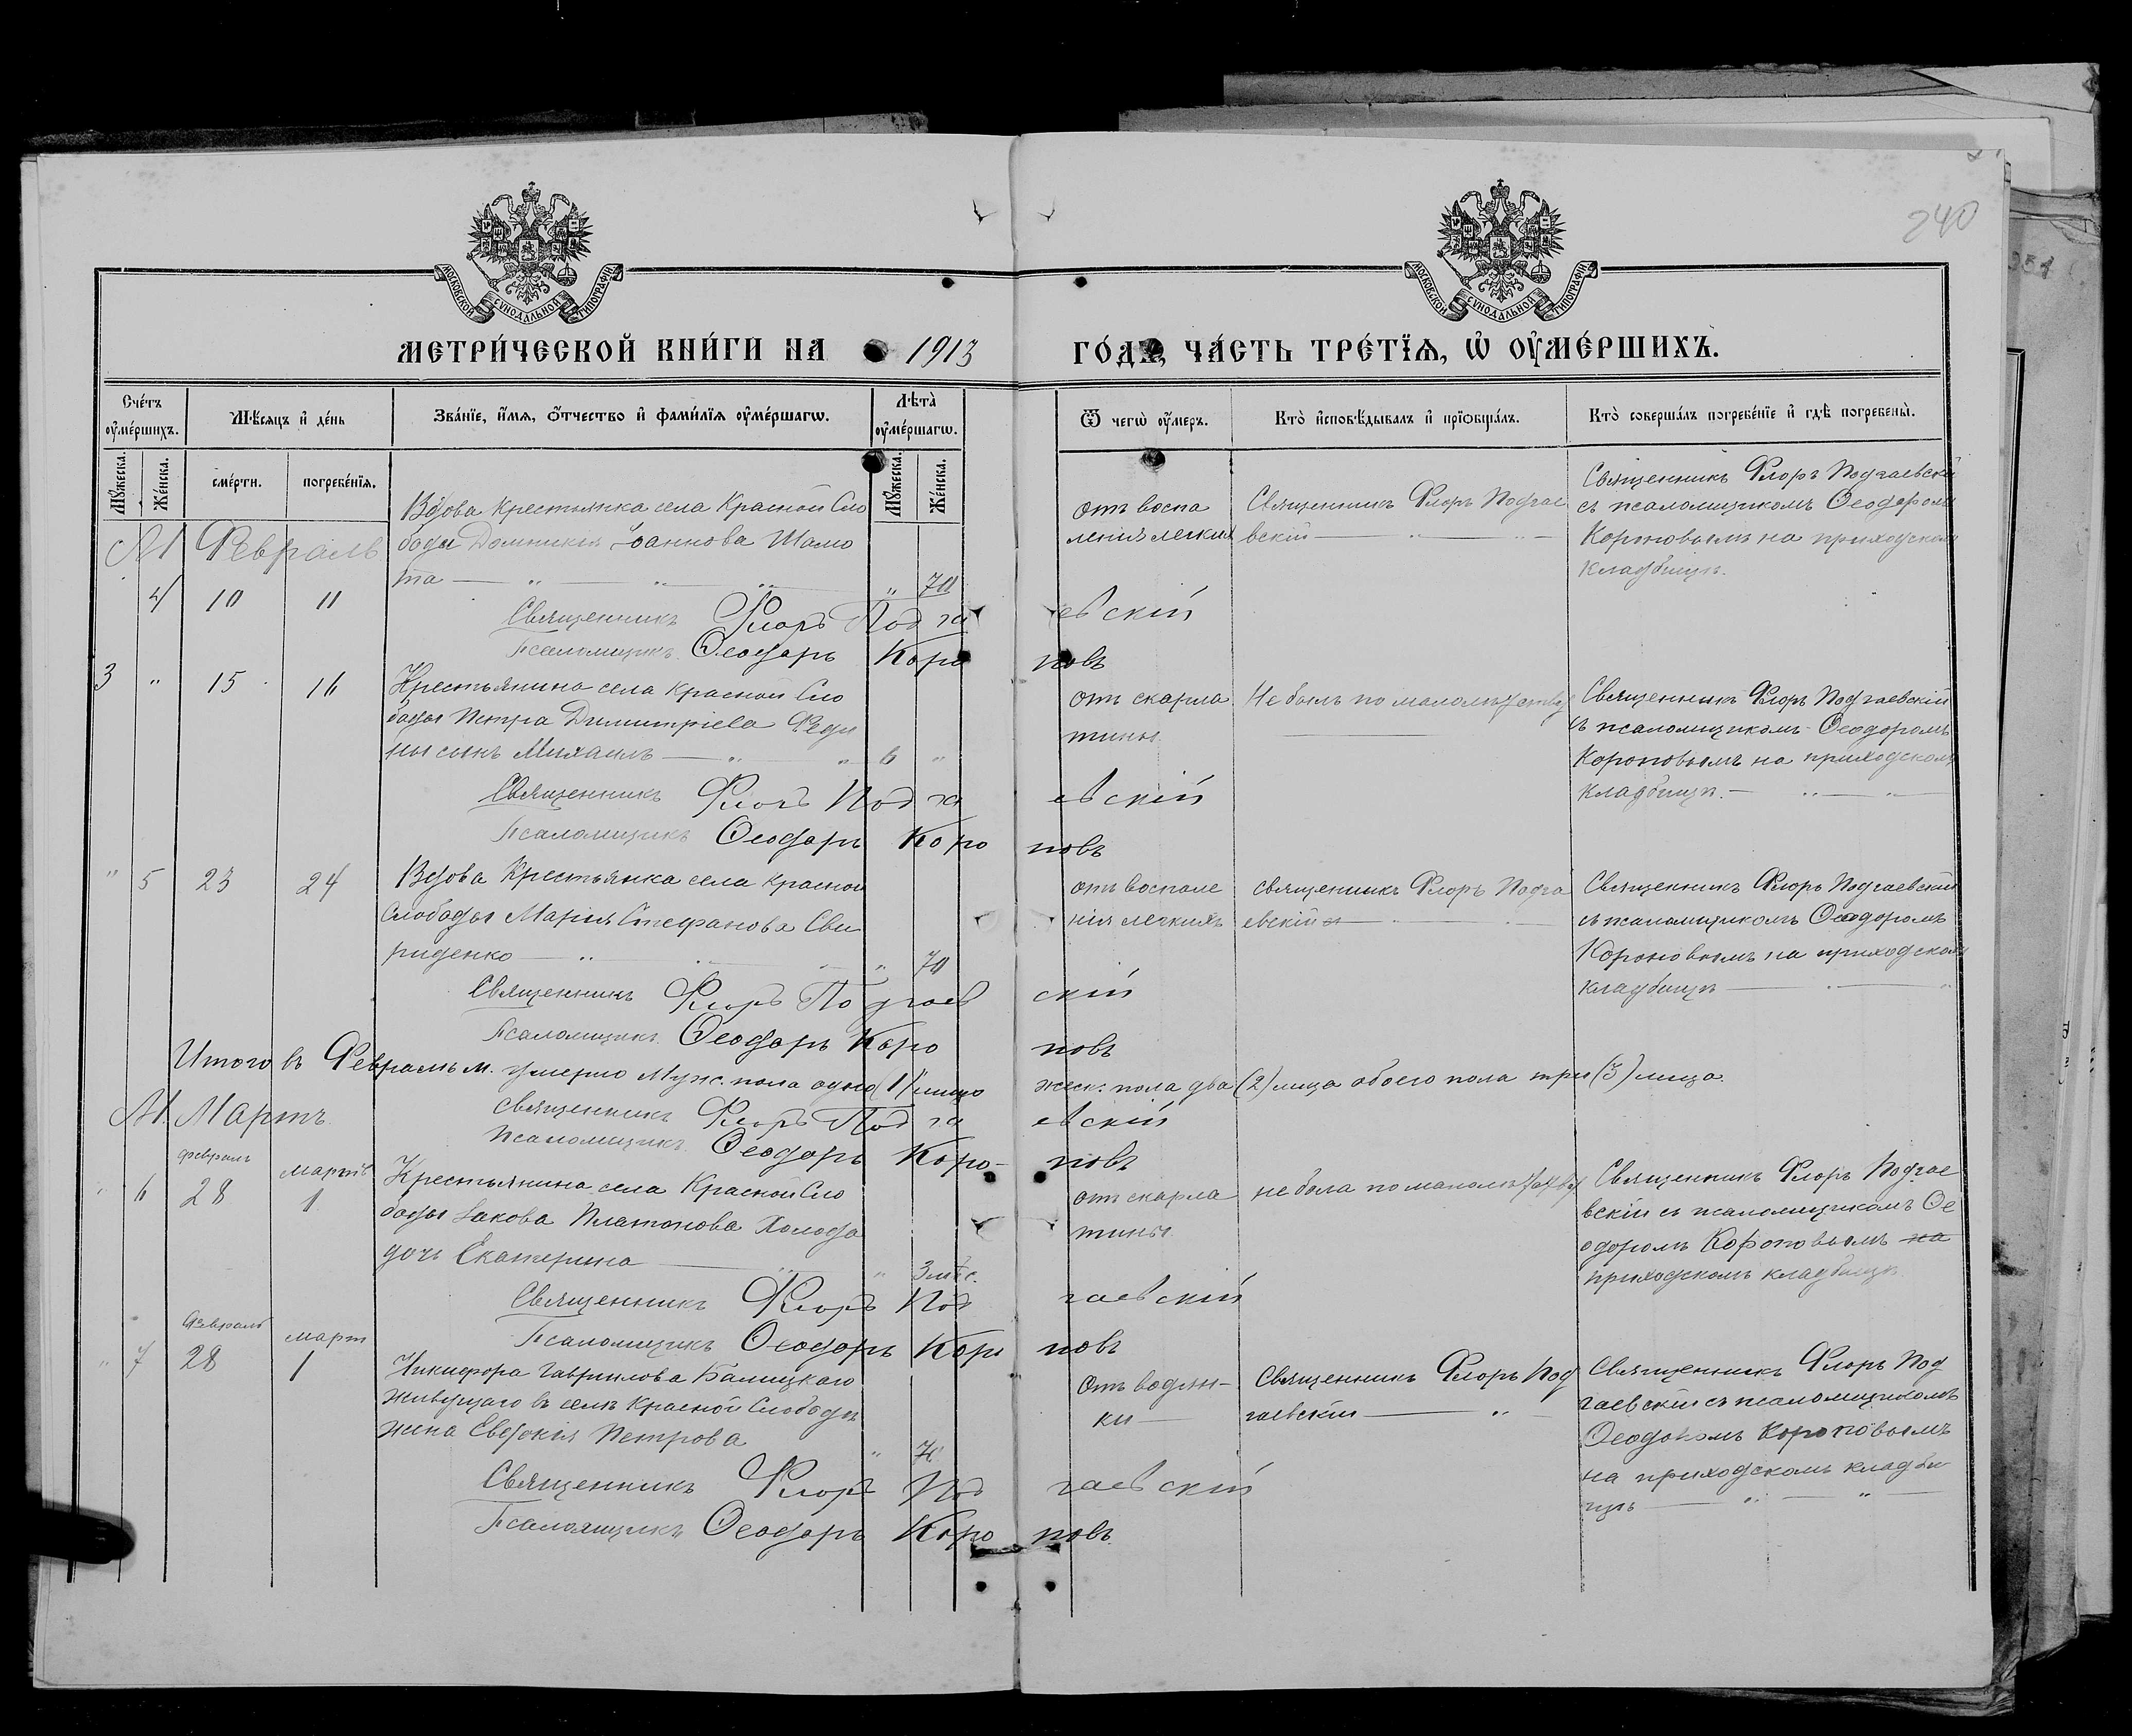 240
МОСКОВСКОЙ СѴНОДАЛЬНОЙ ТИПОГРАФІИ
МОСКОВСКОЙ СѴНОДАЛЬНОЙ ТИПОГРАФІИ
МЕТРИ́ЧЕСКОЙ КНИ́ГИ НА 1913 ГО́ДЪ, ЧА́СТЬ ТРЕ́ТЇѦ, Ѡ҆ ОУ҆МЕ́РШИХЪ.
Сче́тъ оу҆ме́ршихъ.
Мꙋ́жеска.
Же́нска.
Мѣ́сѧцъ и҆ де́нь
сме́рти.
погребе́нїѧ.
Зва́нїе, и҆́мѧ, ѻ҆́тчество и҆ фами́лїѧ оу҆ме́ршагѡ.
Лѣ́та̀ оу҆ме́ршагѡ.
Мꙋ́жеска.
Же́нска.
Ѿ чегѡ̀ оу҆́меръ.
Кто̀ и҆сповѣ́дывалъ и҆ прїѡбща́лъ.
Кто̀ соверша́лъ погребе́нїе и҆ гдѣ̀ погребены̀.
М Февраль
4 10 11
Вдова крестьянка села Красной Сло
боды Домникія Іоаннова Шамо
та „ 70
отъ воспа
ленія легкихъ
Священникъ Флоръ Подгае
вскій
Священникъ Флоръ Подгаевскій
съ псаломщикомъ Ѳеодоромъ
Короповымъ на приходскомъ
кладбищѣ.
Священникъ Флоръ Подгаевскій
Псаломщикъ Ѳеодоръ Короповъ
3 „ 15 16
Крестьянина села Красной Сло
боды Петра Димитріева Феди
ны сынъ Михаилъ 6 „
отъ скарла
тины
Не былъ по малолѣтству
Священникъ Флоръ Подгаевскій
съ псаломщикомъ Ѳеодоромъ
Короповымъ на приходскомъ
кладбищѣ.
Священникъ Флоръ Подгаевскій
Псаломщикъ Ѳеодоръ Короповъ
„ 5 23 24
Вдова Крестьянка села Красной
Слободы Марія Стефанова Сви
риденко „ 70
отъ воспале
нія легкихъ
священникъ Флоръ Подга
евскій
Священникъ Флоръ Подгаевскій
съ псаломщикомъ Ѳеодоромъ
Короповымъ на приходскомъ
кладбищѣ
Священникъ Флоръ Подгаевскій
Псаломщикъ Ѳеодоръ Короповъ
Итого въ Февралѣ м. умерло Муж. пола одно (1) лицо женс: пола два (2) лица обоего пола три (3) лица.
Священникъ Флоръ Подгаевскій
Псаломщикъ Ѳеодоръ Короповъ
М. Мартъ
„ 6 февраль 28 мартъ 1
Крестьянина села Красной Сло
боды Іакова Платонова Холода
дочь Екатерина „ 3 мѣс.
отъ скарла
тины
не была по малолѣтству
Священникъ Флоръ Подгае
вскій съ псаломщикомъ Ѳе
одоромъ Короповымъ на
приходскомъ кладбищѣ
Священникъ Флоръ Подгаевскій
Псаломщикъ Ѳеодоръ Короповъ
„ 7 Февраль 28 март 1
Никифора Гавриилова Балицкаго
живущаго въ селѣ Красной Слободѣ
жена Евдокія Петрова „
Отъ водян-
ки
Священникъ Флоръ Под
гаевскій
Священникъ Флоръ Под
гаевскій съ псаломщикомъ
Ѳеодоромъ Короповымъ
на приходскомъ кладби
щѣ
Священникъ Флоръ Подгаевскій
Псаломщикъ Ѳеодоръ Короповъ